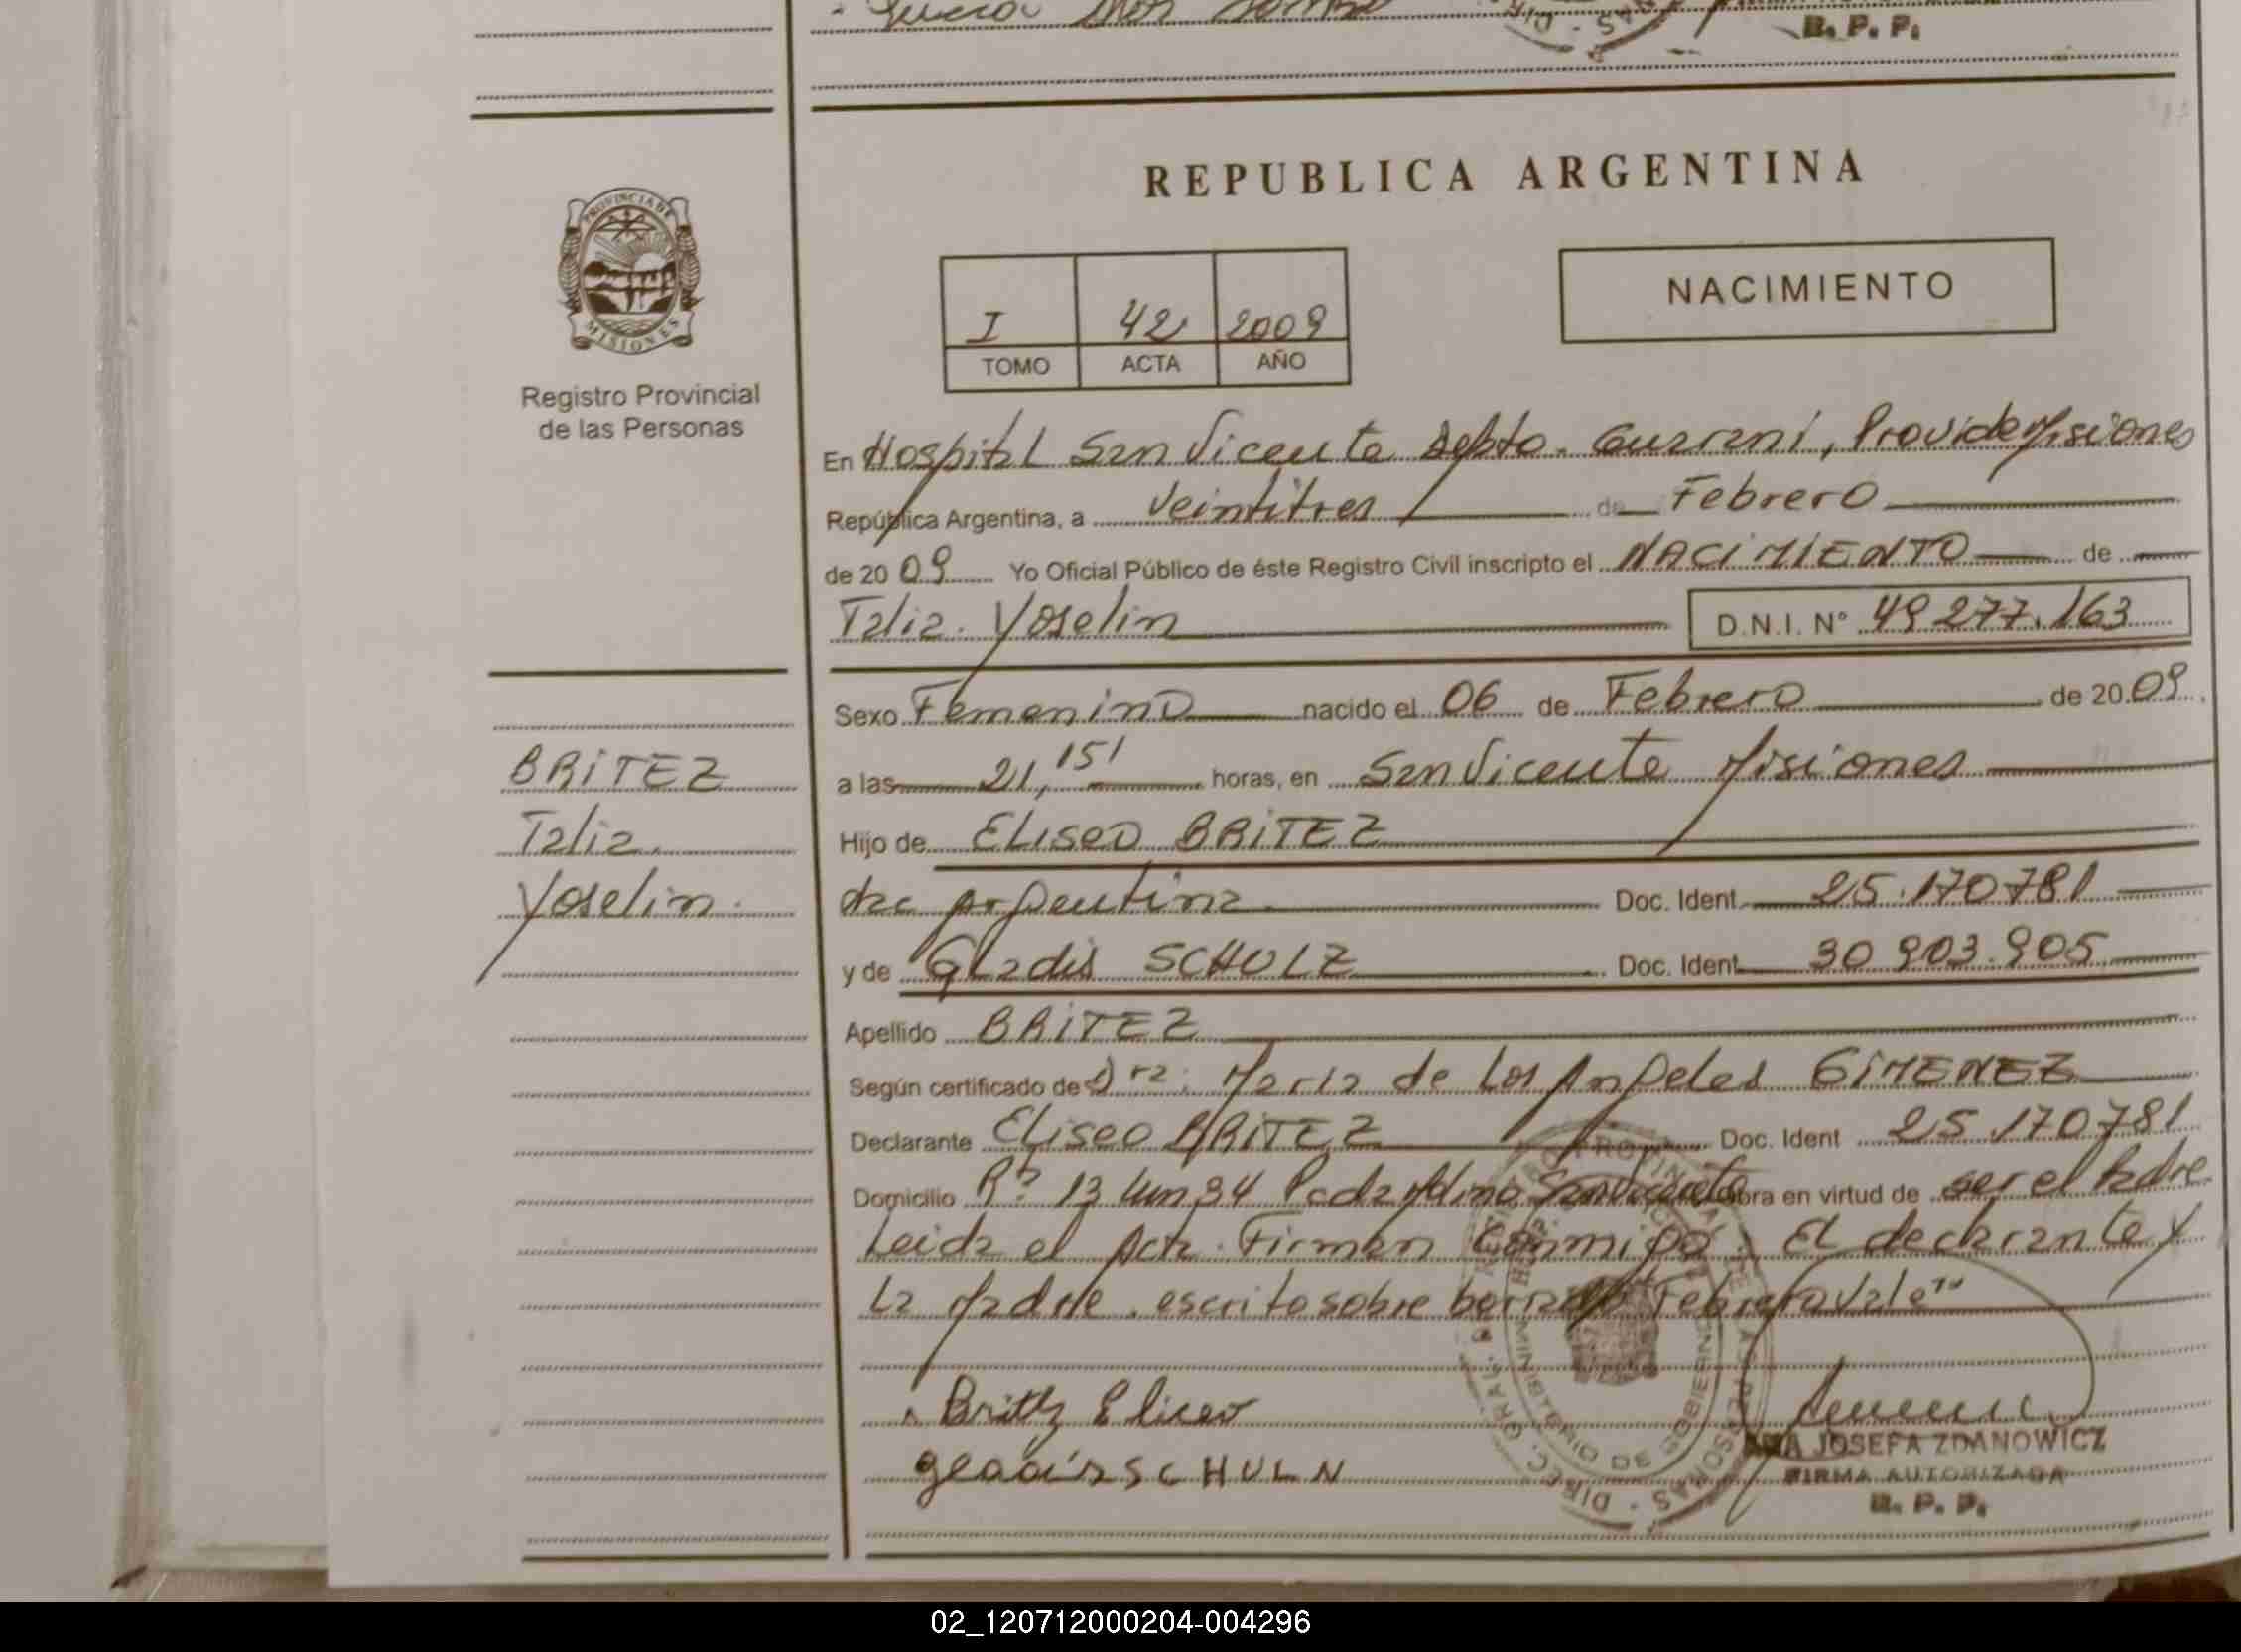 B. P. P.
REPUBLICA ARGENTINA
PROVINCIA DE
MISIONES
Registro Provincial
de las Personas
I 42 2009
TOMO ACTA AÑO
NACIMIENTO
En Hospital San Vicente Depto. Guarani, Prov. de Misiones
República Argentina, a Veintitres de Febrero
de 20 09 Yo Oficial Público de éste Registro Civil inscripto el NACIMIENTO de
Talia. Yoselin D.N.I. N° 49 277.163
Sexo Femenino nacido el 06 de Febrero de 20 09
a las 21,15' horas, en San Vicente Misiones
Hijo de ELISEO BRITEZ
nac Argentina Doc. Ident 25.170781
y de Gladis SCHULZ Doc. Ident 30 903.905
Apellido BRITEZ
Según certificado de Dra. Maria de Los Angeles GIMENEZ
Declarante Eliseo BRITEZ Doc. Ident 25.170781
Domicilio R? 13 km 34 San Vicente obra en virtud de ser el Padre
Leida el Acta. Firman Conmigo; El declarante y
La Madre. escrito sobre borrado "Febrero Vale"
BRITEZ
Talia.
Yoselin.
Britez Eliceo
SCHULN
ANA JOSEFA ZDANOWICZ
FIRMA AUTORIZADA
R. P. P.
02_120712000204-004296